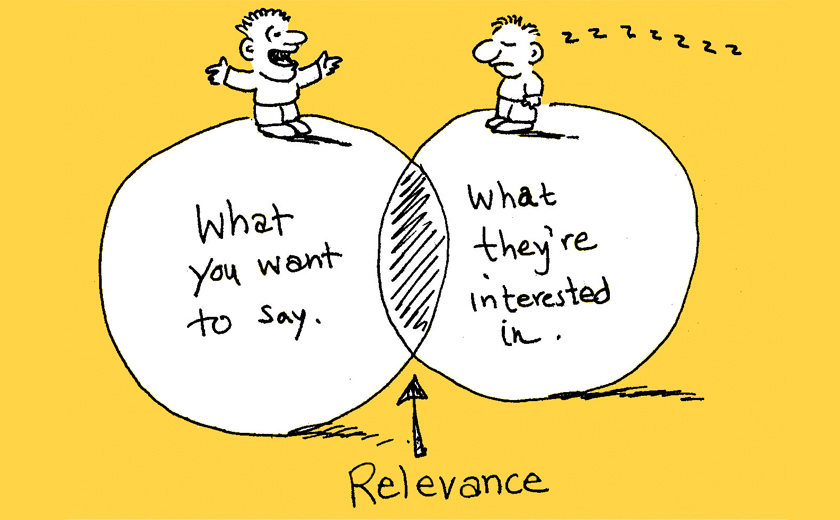 z z z z z z z
What
you want
to say.
What
they're
interested
in.
Relevance